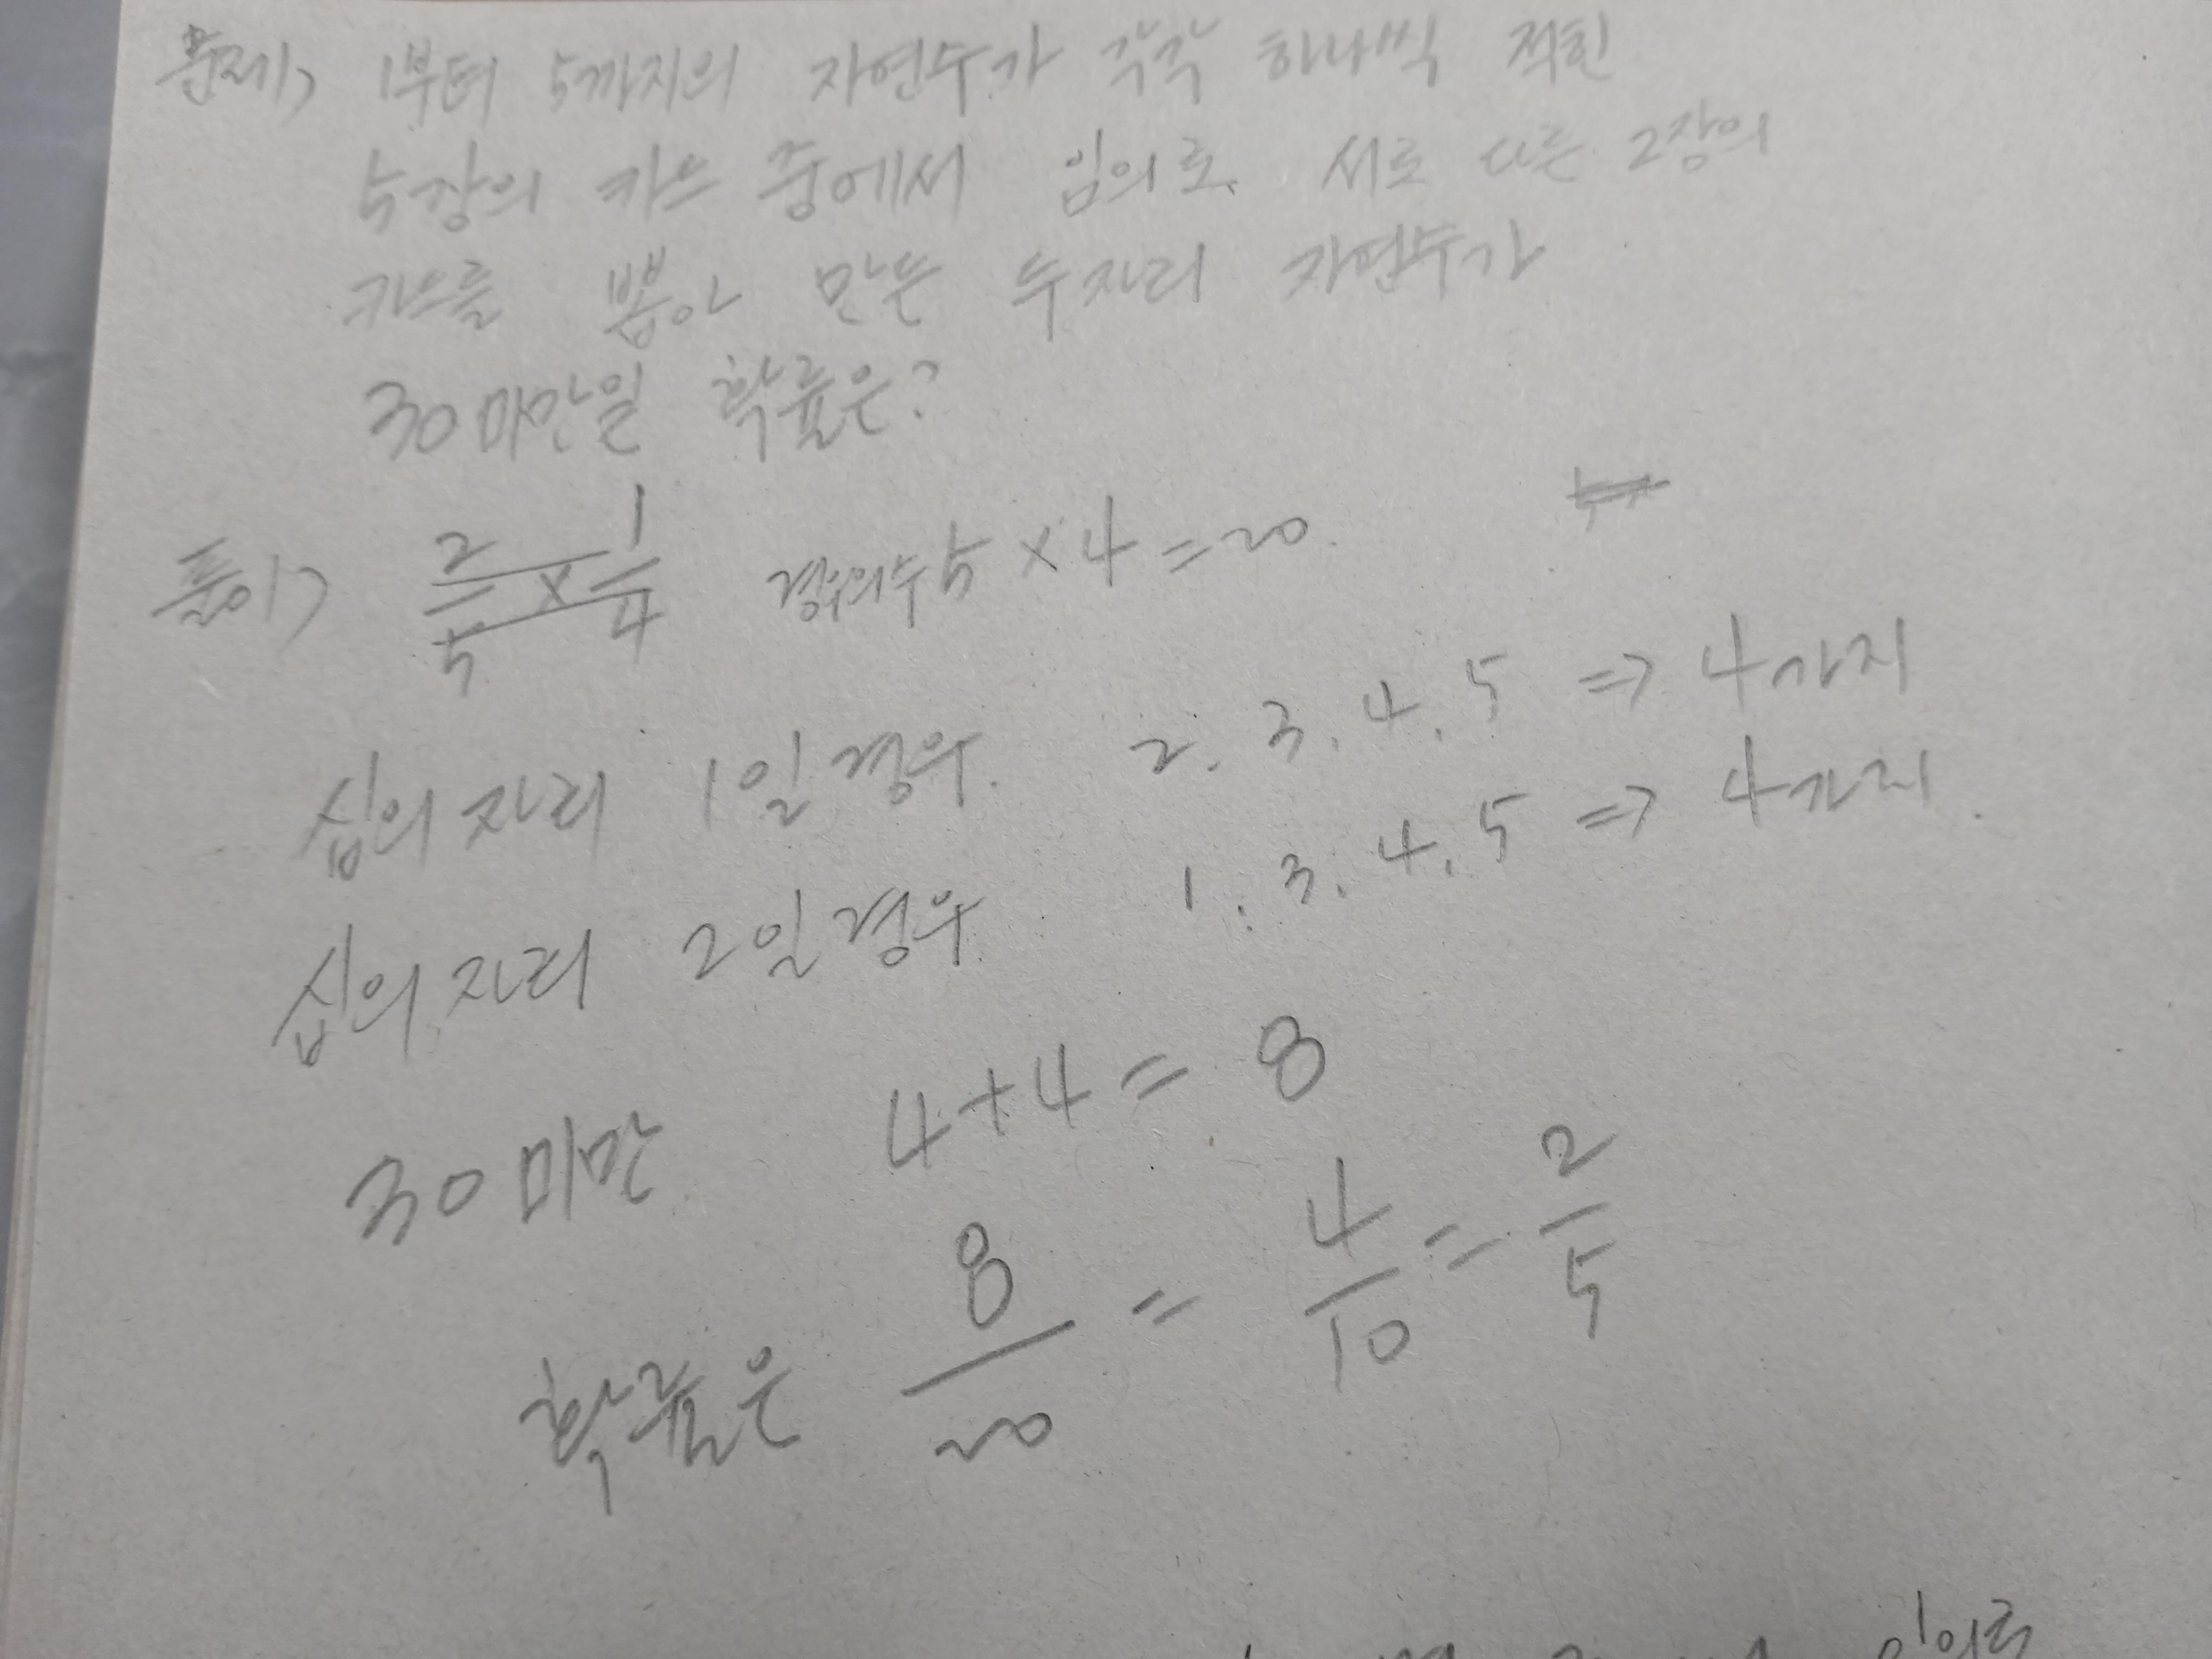 문제> 1부터 5까지의 자연수가 각각 하나씩 적힌
5장의 카드 중에서 임의로 서로 다른 2장의
카드를 뽑아 만든 두자리 자연수가
30미만일 확률은?
풀이> 2/5 × 1/4 경우의수 5 × 4 = 20.
십의 자리 1일 경우. 2. 3. 4. 5 ⇒ 4가지
십의 자리 2일 경우 1. 3. 4. 5 ⇒ 4가지.
30미만 4+4 = 8
확률은 8/20 = 4/10 = 2/5
임의로